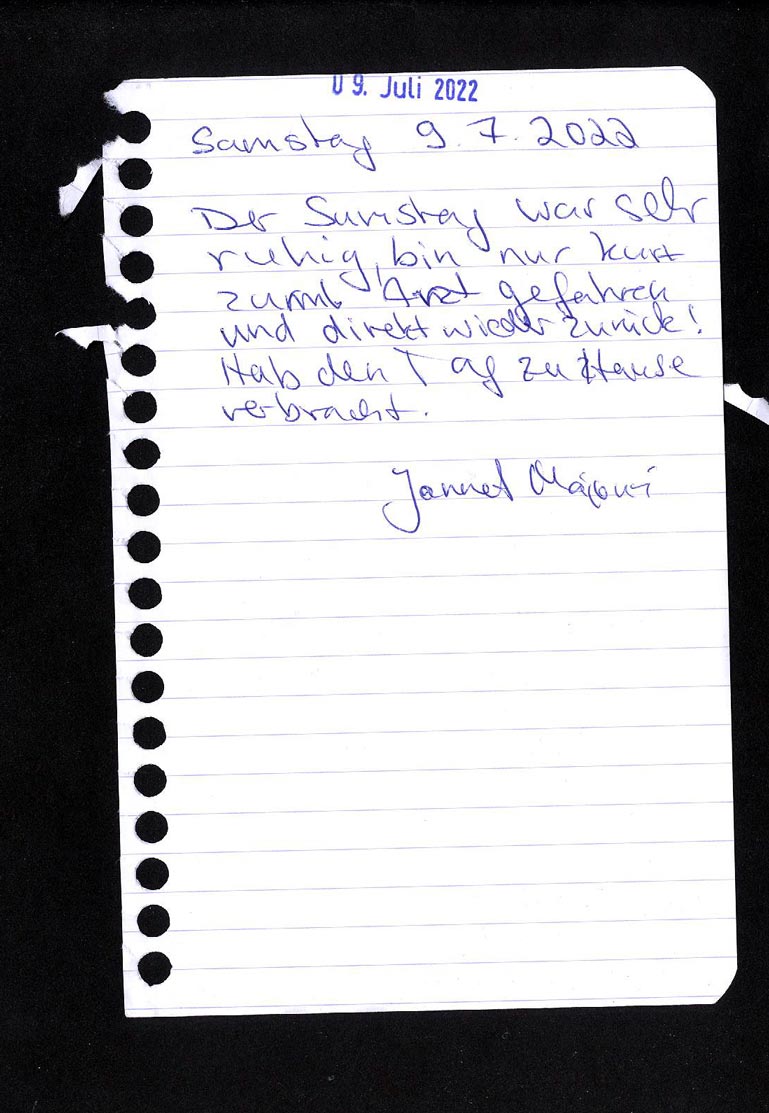 09. Juli 2022
Samstag 9.7.2022
Der Samstag war sehr
ruhig, bin nur kurz
zum Arzt gefahren
und direkt wieder zurück!
Hab den Tag zu Hause
verbracht.
Jannet